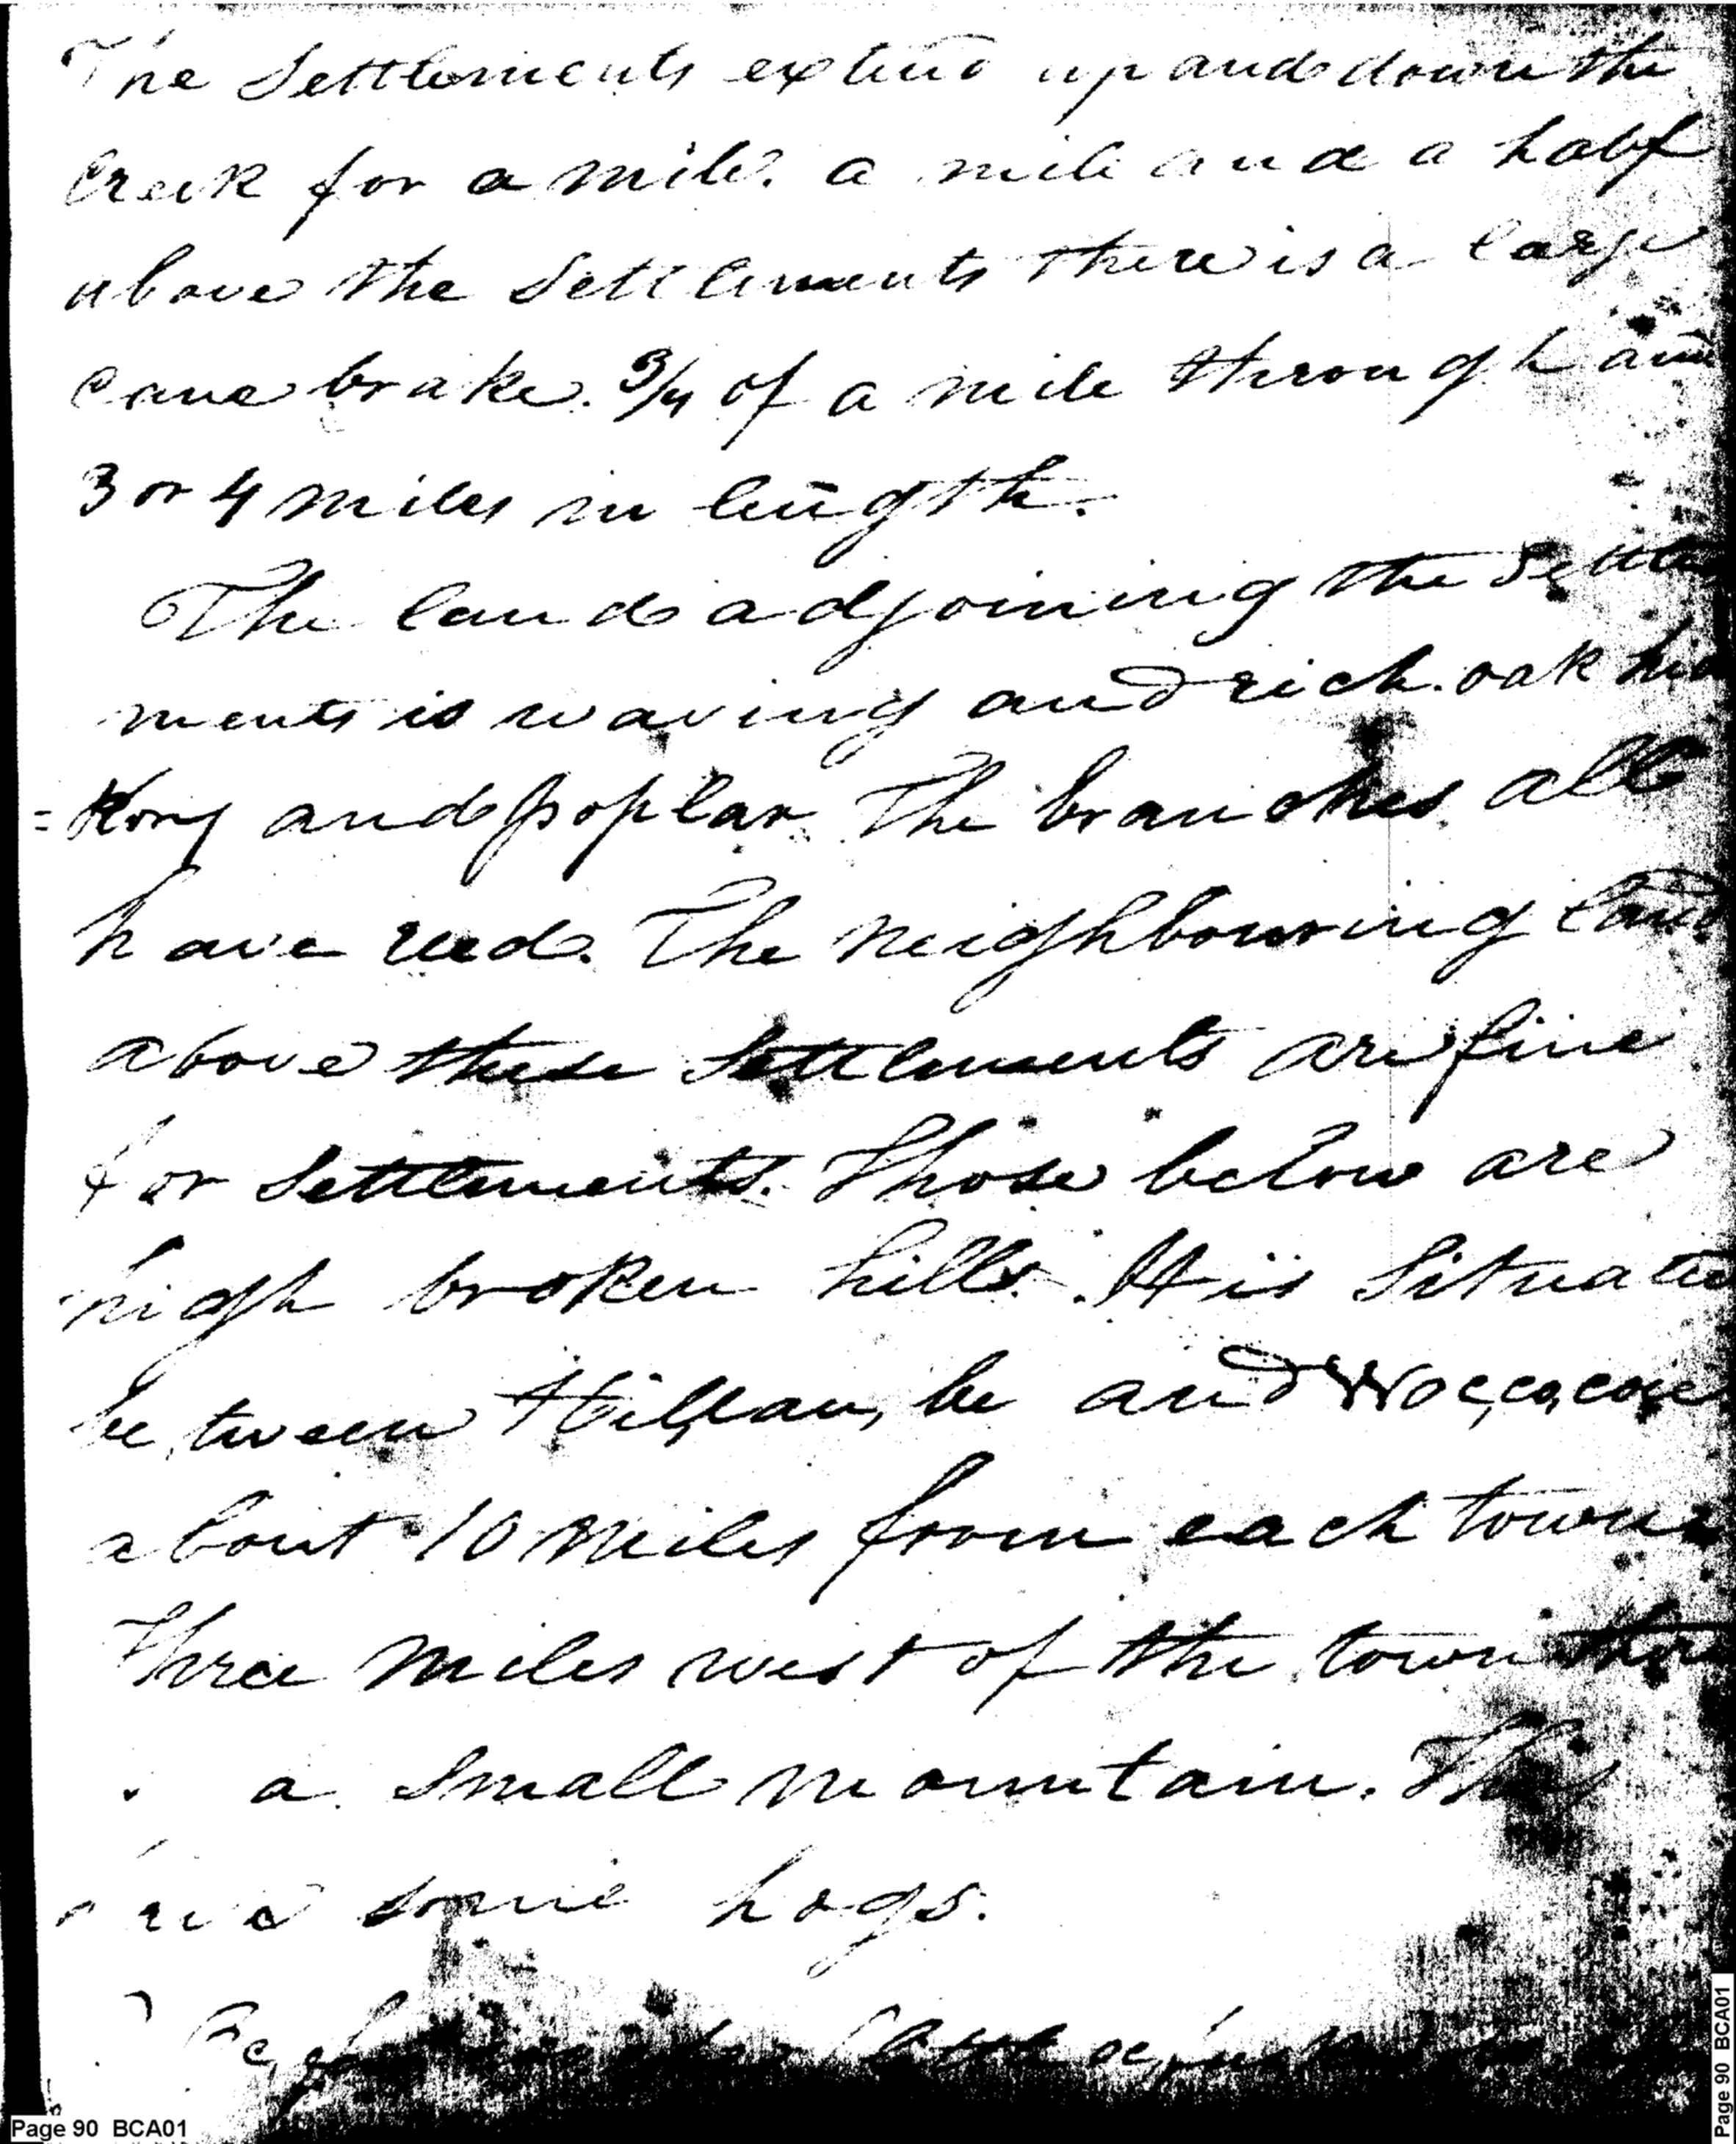 The Settlements extend up and down the
Creek for a mile. a mile and a half
above the Settlements there is a large
Cane brake. 3/4 of a mile through and
3 or 4 miles in length.
The land adjoining the Settle
ments is waving and rich. oak hic
= kory and poplar. The branches all
have reed. The neighbouring land
above these Settlements are fine
for Settlements. Those below are
high broken hills. It is Situate
be,tween Hil,lau,be and Woc,co,coie
about 10 miles from each town
Three miles west of the town there
a Small mountain. They
some hogs.
Page 90 BCA01
Page 90 BCA01